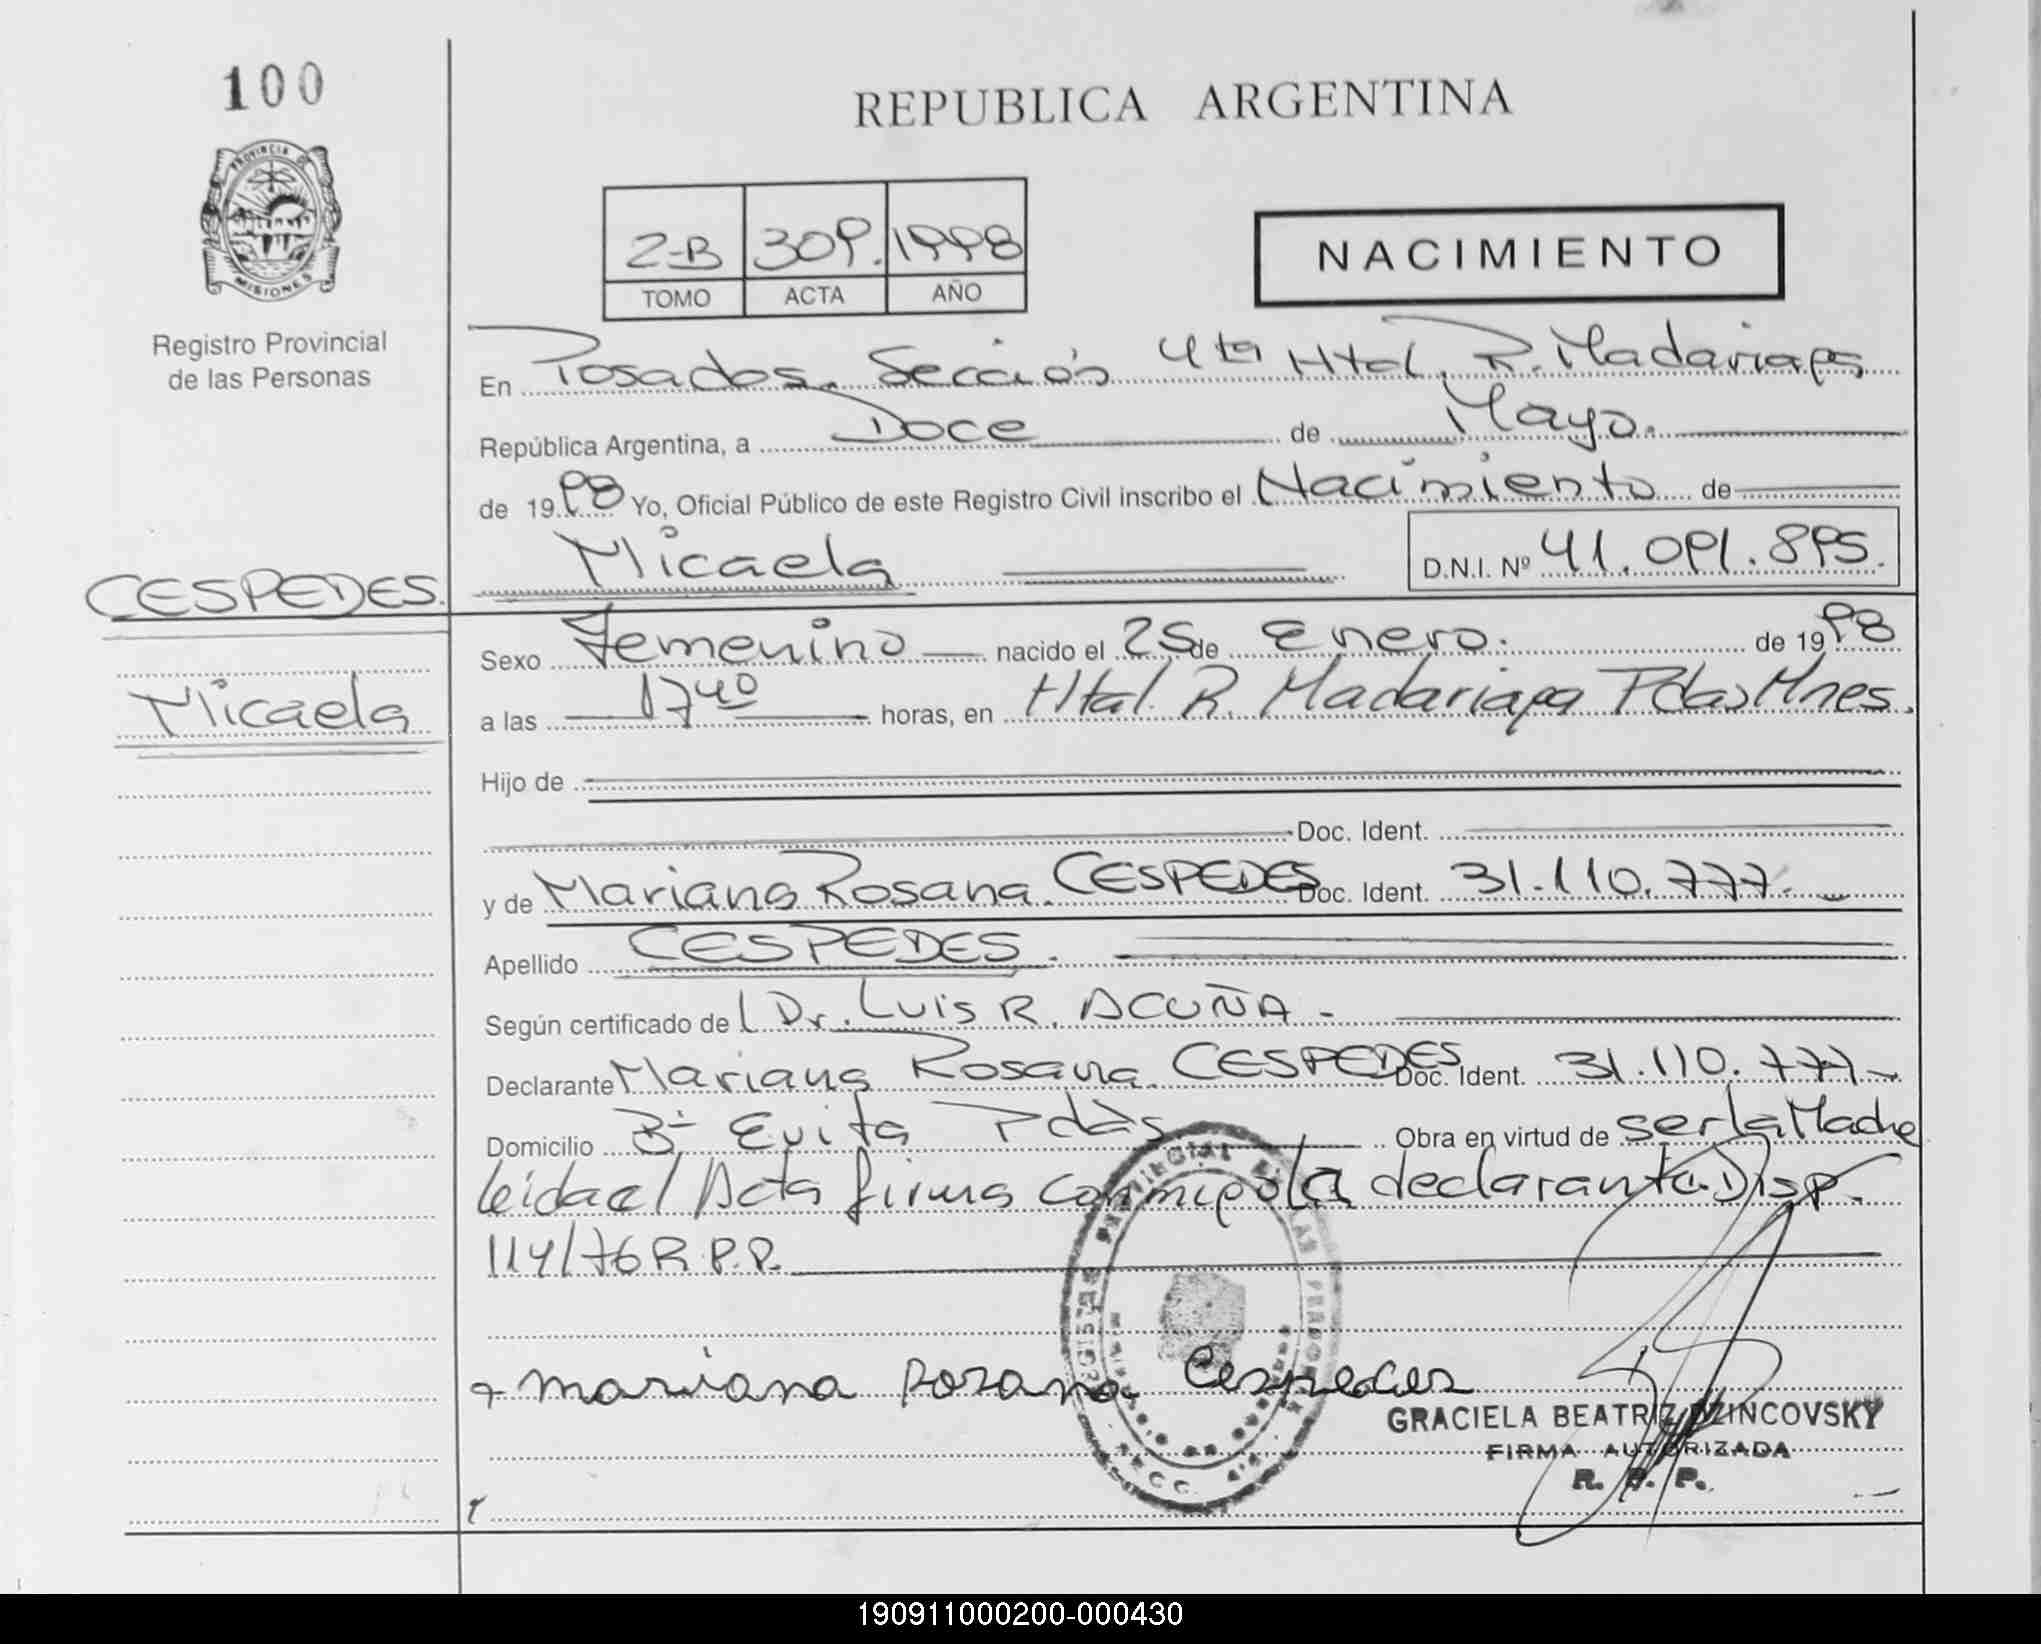 100
REPUBLICA ARGENTINA
PROVINCIA DE
MISIONES
Registro Provincial
de las Personas
2-B 309. 1998
TOMO ACTA AÑO
NACIMIENTO
En Posadas. Sección 4ta Htal. R. Madariaga
República Argentina, a Doce de Mayo.
de 1998 Yo, Oficial Público de este Registro Civil inscribo el Nacimiento de
Micaela D.N.I. Nº 41.091.895.
CESPEDES.
Micaela
Sexo Femenino nacido el 25 de Enero. de 1998
a las 17 40 horas, en Htal. R. Madariaga Pdas Mnes.
Hijo de
Doc. Ident.
y de Mariana Rosana. CESPEDES Doc. Ident. 31.110.777.
Apellido CESPEDES.
Según certificado del Dr. LUIS R. ACUÑA -
Declarante Mariana Rosana CESPEDES Doc. Ident. 31.110.777
Domicilio Bº Evita Pdas Obra en virtud de ser la Madre
leida el Acta firma conmigo la declarante. Disp.
114/76 R.P.P.
mariana rosana Cespedes
GRACIELA BEATRIZ DZINCOVSKY
FIRMA AUTORIZADA
R. P. P.
190911000200-000430